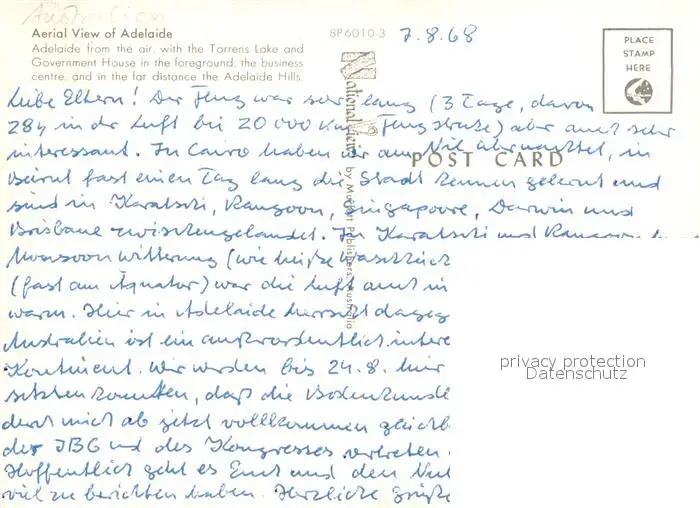 Australien
Aerial View of Adelaide
Adelaide from the air, with the Torrens Lake and
Government House in the foreground, the business
centre, and in the far distance the Adelaide Hills.
8P6010-3
7.8.68
PLACE
STAMP
HERE
National View
by Mulgol Publishers, Australia
POST CARD
Liebe Eltern! Der Flug war sehr lang (3 Tage, davon
28h in der Luft bei 20 000 km Flugstraße) aber auch sehr
interessant. In Cairo haben wir am Nil übernachtet, in
Beirut fast einen Tag lang die Stadt kennen gelernt und
sind in Karatschi, Rangoon, Singapoore, Darwin und
Brisbane zwischengelandet. In Karatschi und
Monsoon witterung (wie heiße Waschküch
(fast am Äquator) war die Luft auch in
warm. Hier in Adelaide herrscht dageg
Australien ist ein außerordentlich intere
Kontinent. Wir werden bis 24.8. hier
daß die Bodenkunde
mich ab jetzt vollkommen gleichb
der IBG und des Kongresses vertreten.
Hoffentlich geht es Euch und den
viel zu berichten haben. Herzliche Grüße
privacy protection
Datenschutz